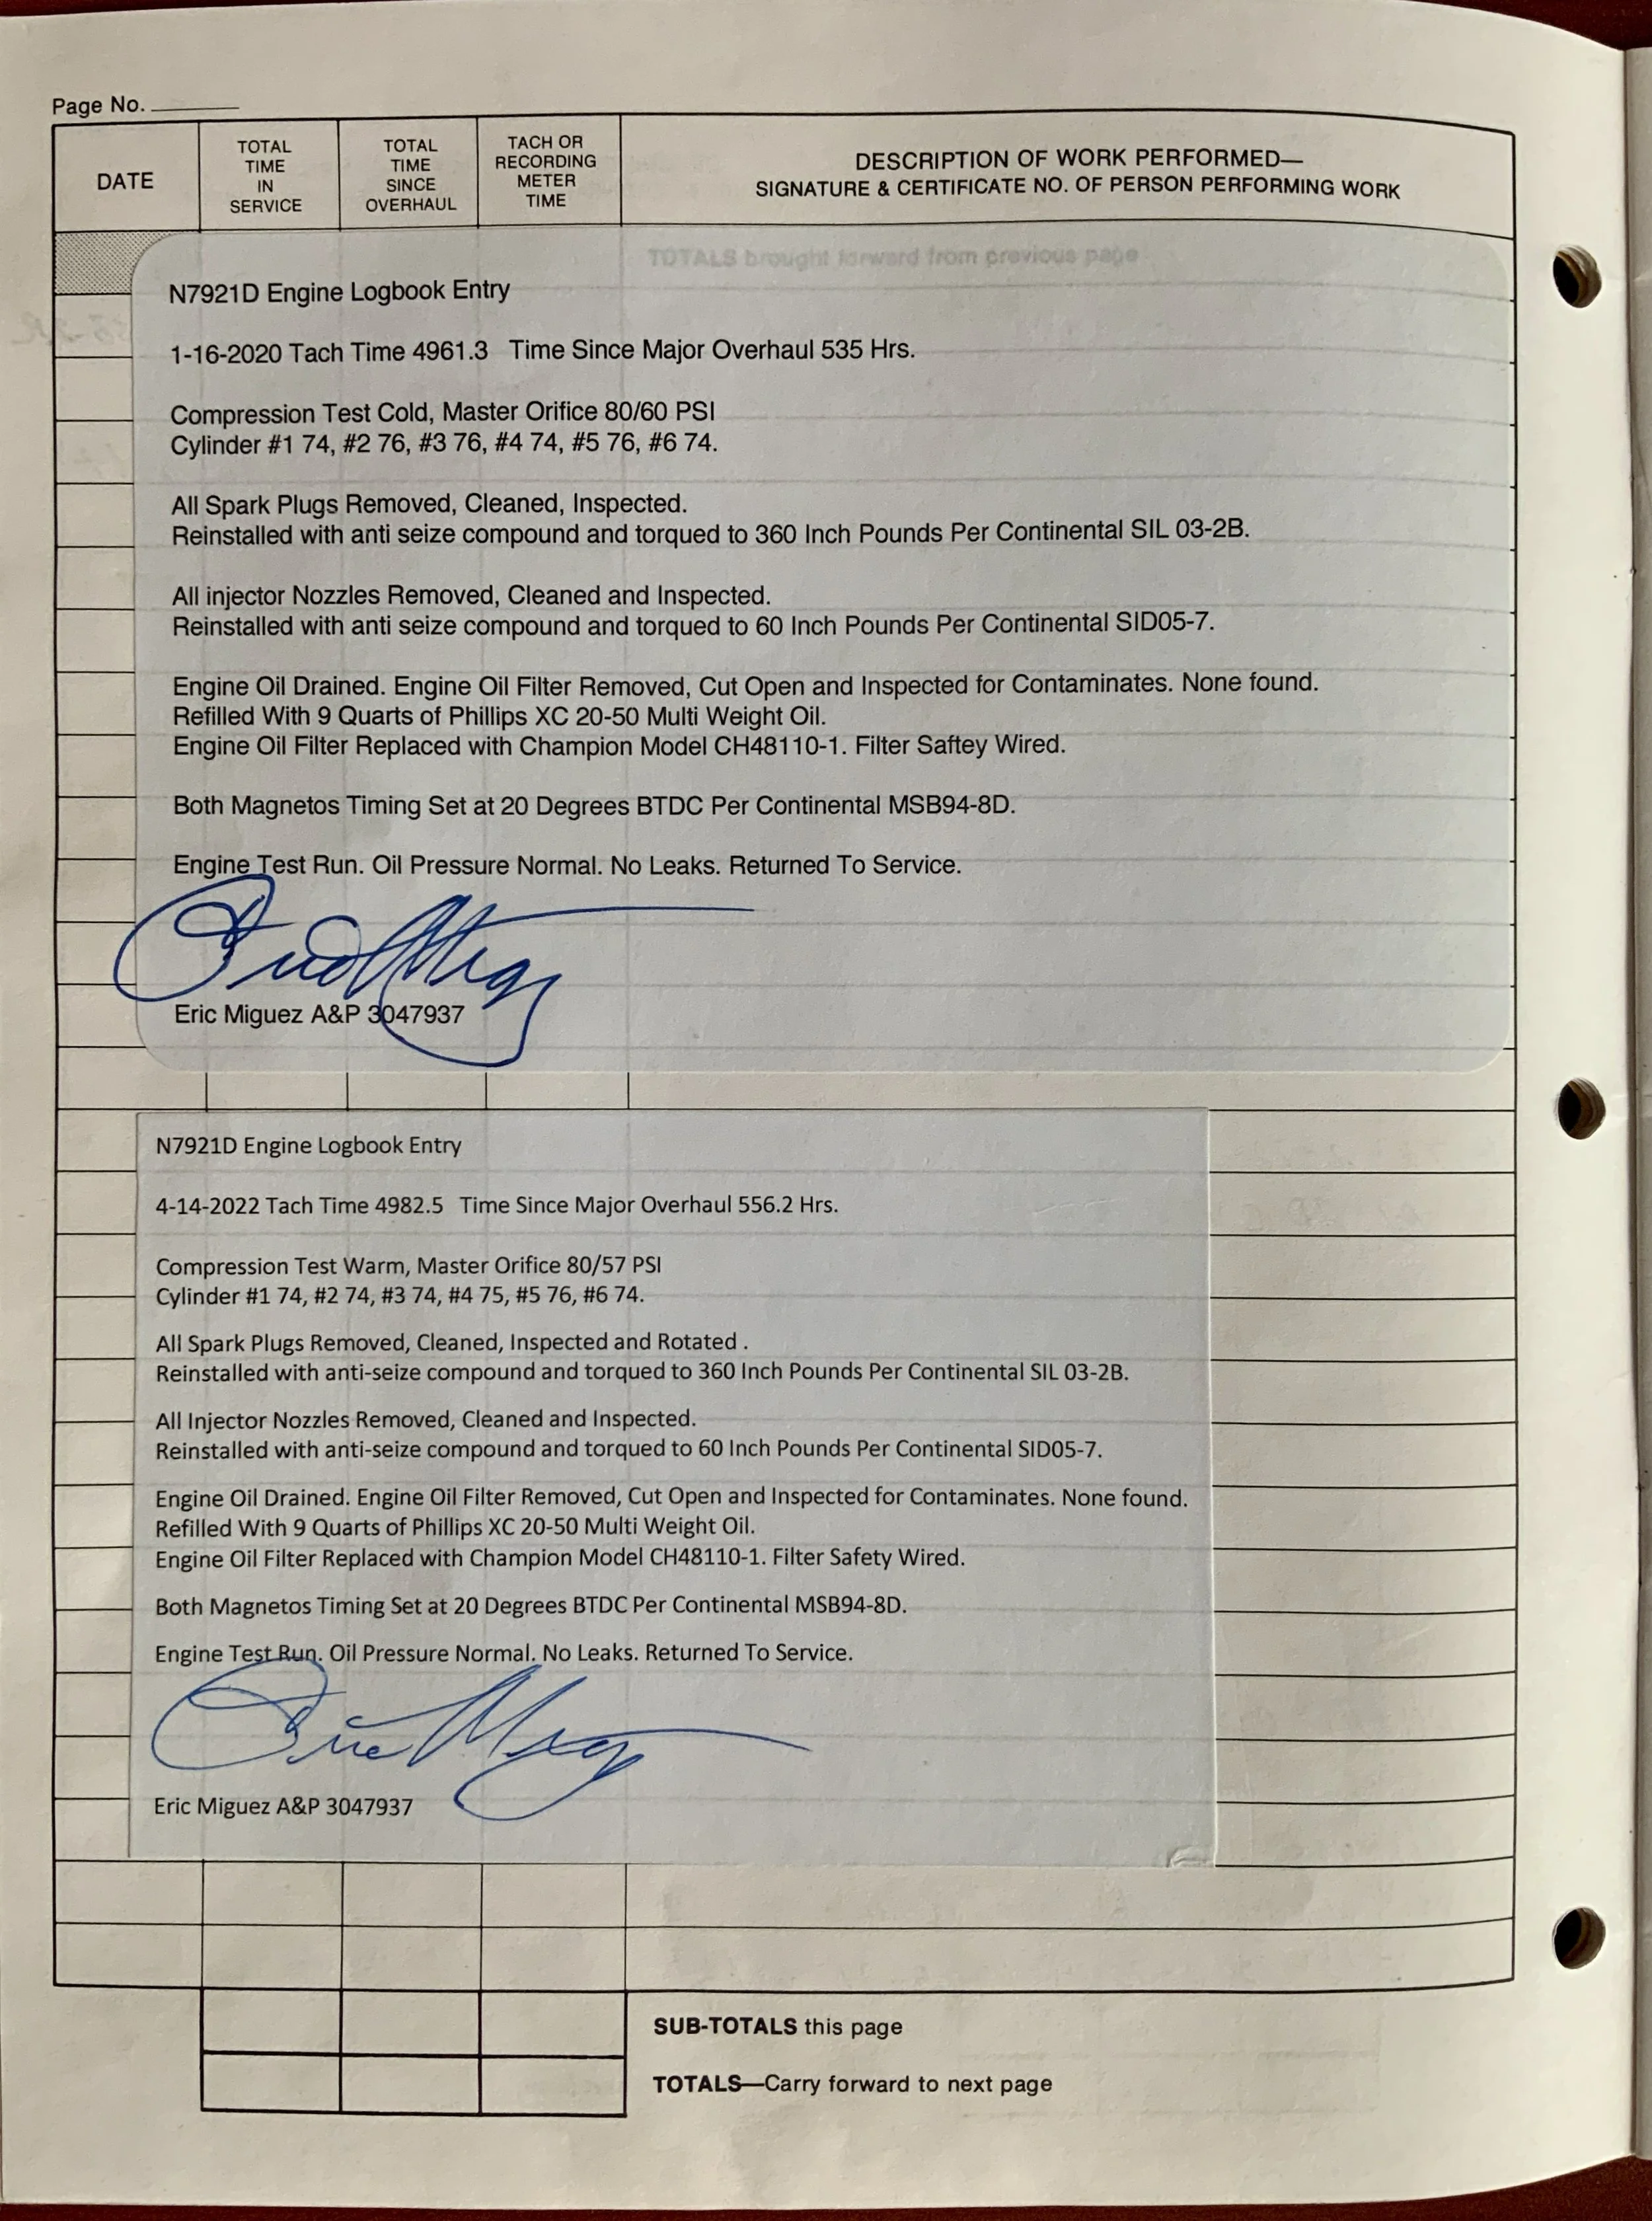 Page No.
DATE
TOTAL TIME IN SERVICE
TOTAL TIME SINCE OVERHAUL
TACH OR RECORDING METER TIME
DESCRIPTION OF WORK PERFORMED—
SIGNATURE & CERTIFICATE NO. OF PERSON PERFORMING WORK
TOTALS brought forward from previous page
N7921D Engine Logbook Entry
1-16-2020 Tach Time 4961.3 Time Since Major Overhaul 535 Hrs.
Compression Test Cold, Master Orifice 80/60 PSI
Cylinder #1 74, #2 76, #3 76, #4 74, #5 76, #6 74.
All Spark Plugs Removed, Cleaned, Inspected.
Reinstalled with anti seize compound and torqued to 360 Inch Pounds Per Continental SIL 03-2B.
All injector Nozzles Removed, Cleaned and Inspected.
Reinstalled with anti seize compound and torqued to 60 Inch Pounds Per Continental SID05-7.
Engine Oil Drained. Engine Oil Filter Removed, Cut Open and Inspected for Contaminates. None found.
Refilled With 9 Quarts of Phillips XC 20-50 Multi Weight Oil.
Engine Oil Filter Replaced with Champion Model CH48110-1. Filter Saftey Wired.
Both Magnetos Timing Set at 20 Degrees BTDC Per Continental MSB94-8D.
Engine Test Run. Oil Pressure Normal. No Leaks. Returned To Service.
Eric Miguez A&P 3047937
N7921D Engine Logbook Entry
4-14-2022 Tach Time 4982.5 Time Since Major Overhaul 556.2 Hrs.
Compression Test Warm, Master Orifice 80/57 PSI
Cylinder #1 74, #2 74, #3 74, #4 75, #5 76, #6 74.
All Spark Plugs Removed, Cleaned, Inspected and Rotated .
Reinstalled with anti-seize compound and torqued to 360 Inch Pounds Per Continental SIL 03-2B.
All Injector Nozzles Removed, Cleaned and Inspected.
Reinstalled with anti-seize compound and torqued to 60 Inch Pounds Per Continental SID05-7.
Engine Oil Drained. Engine Oil Filter Removed, Cut Open and Inspected for Contaminates. None found.
Refilled With 9 Quarts of Phillips XC 20-50 Multi Weight Oil.
Engine Oil Filter Replaced with Champion Model CH48110-1. Filter Safety Wired.
Both Magnetos Timing Set at 20 Degrees BTDC Per Continental MSB94-8D.
Engine Test Run. Oil Pressure Normal. No Leaks. Returned To Service.
Eric Miguez A&P 3047937
SUB-TOTALS this page
TOTALS—Carry forward to next page